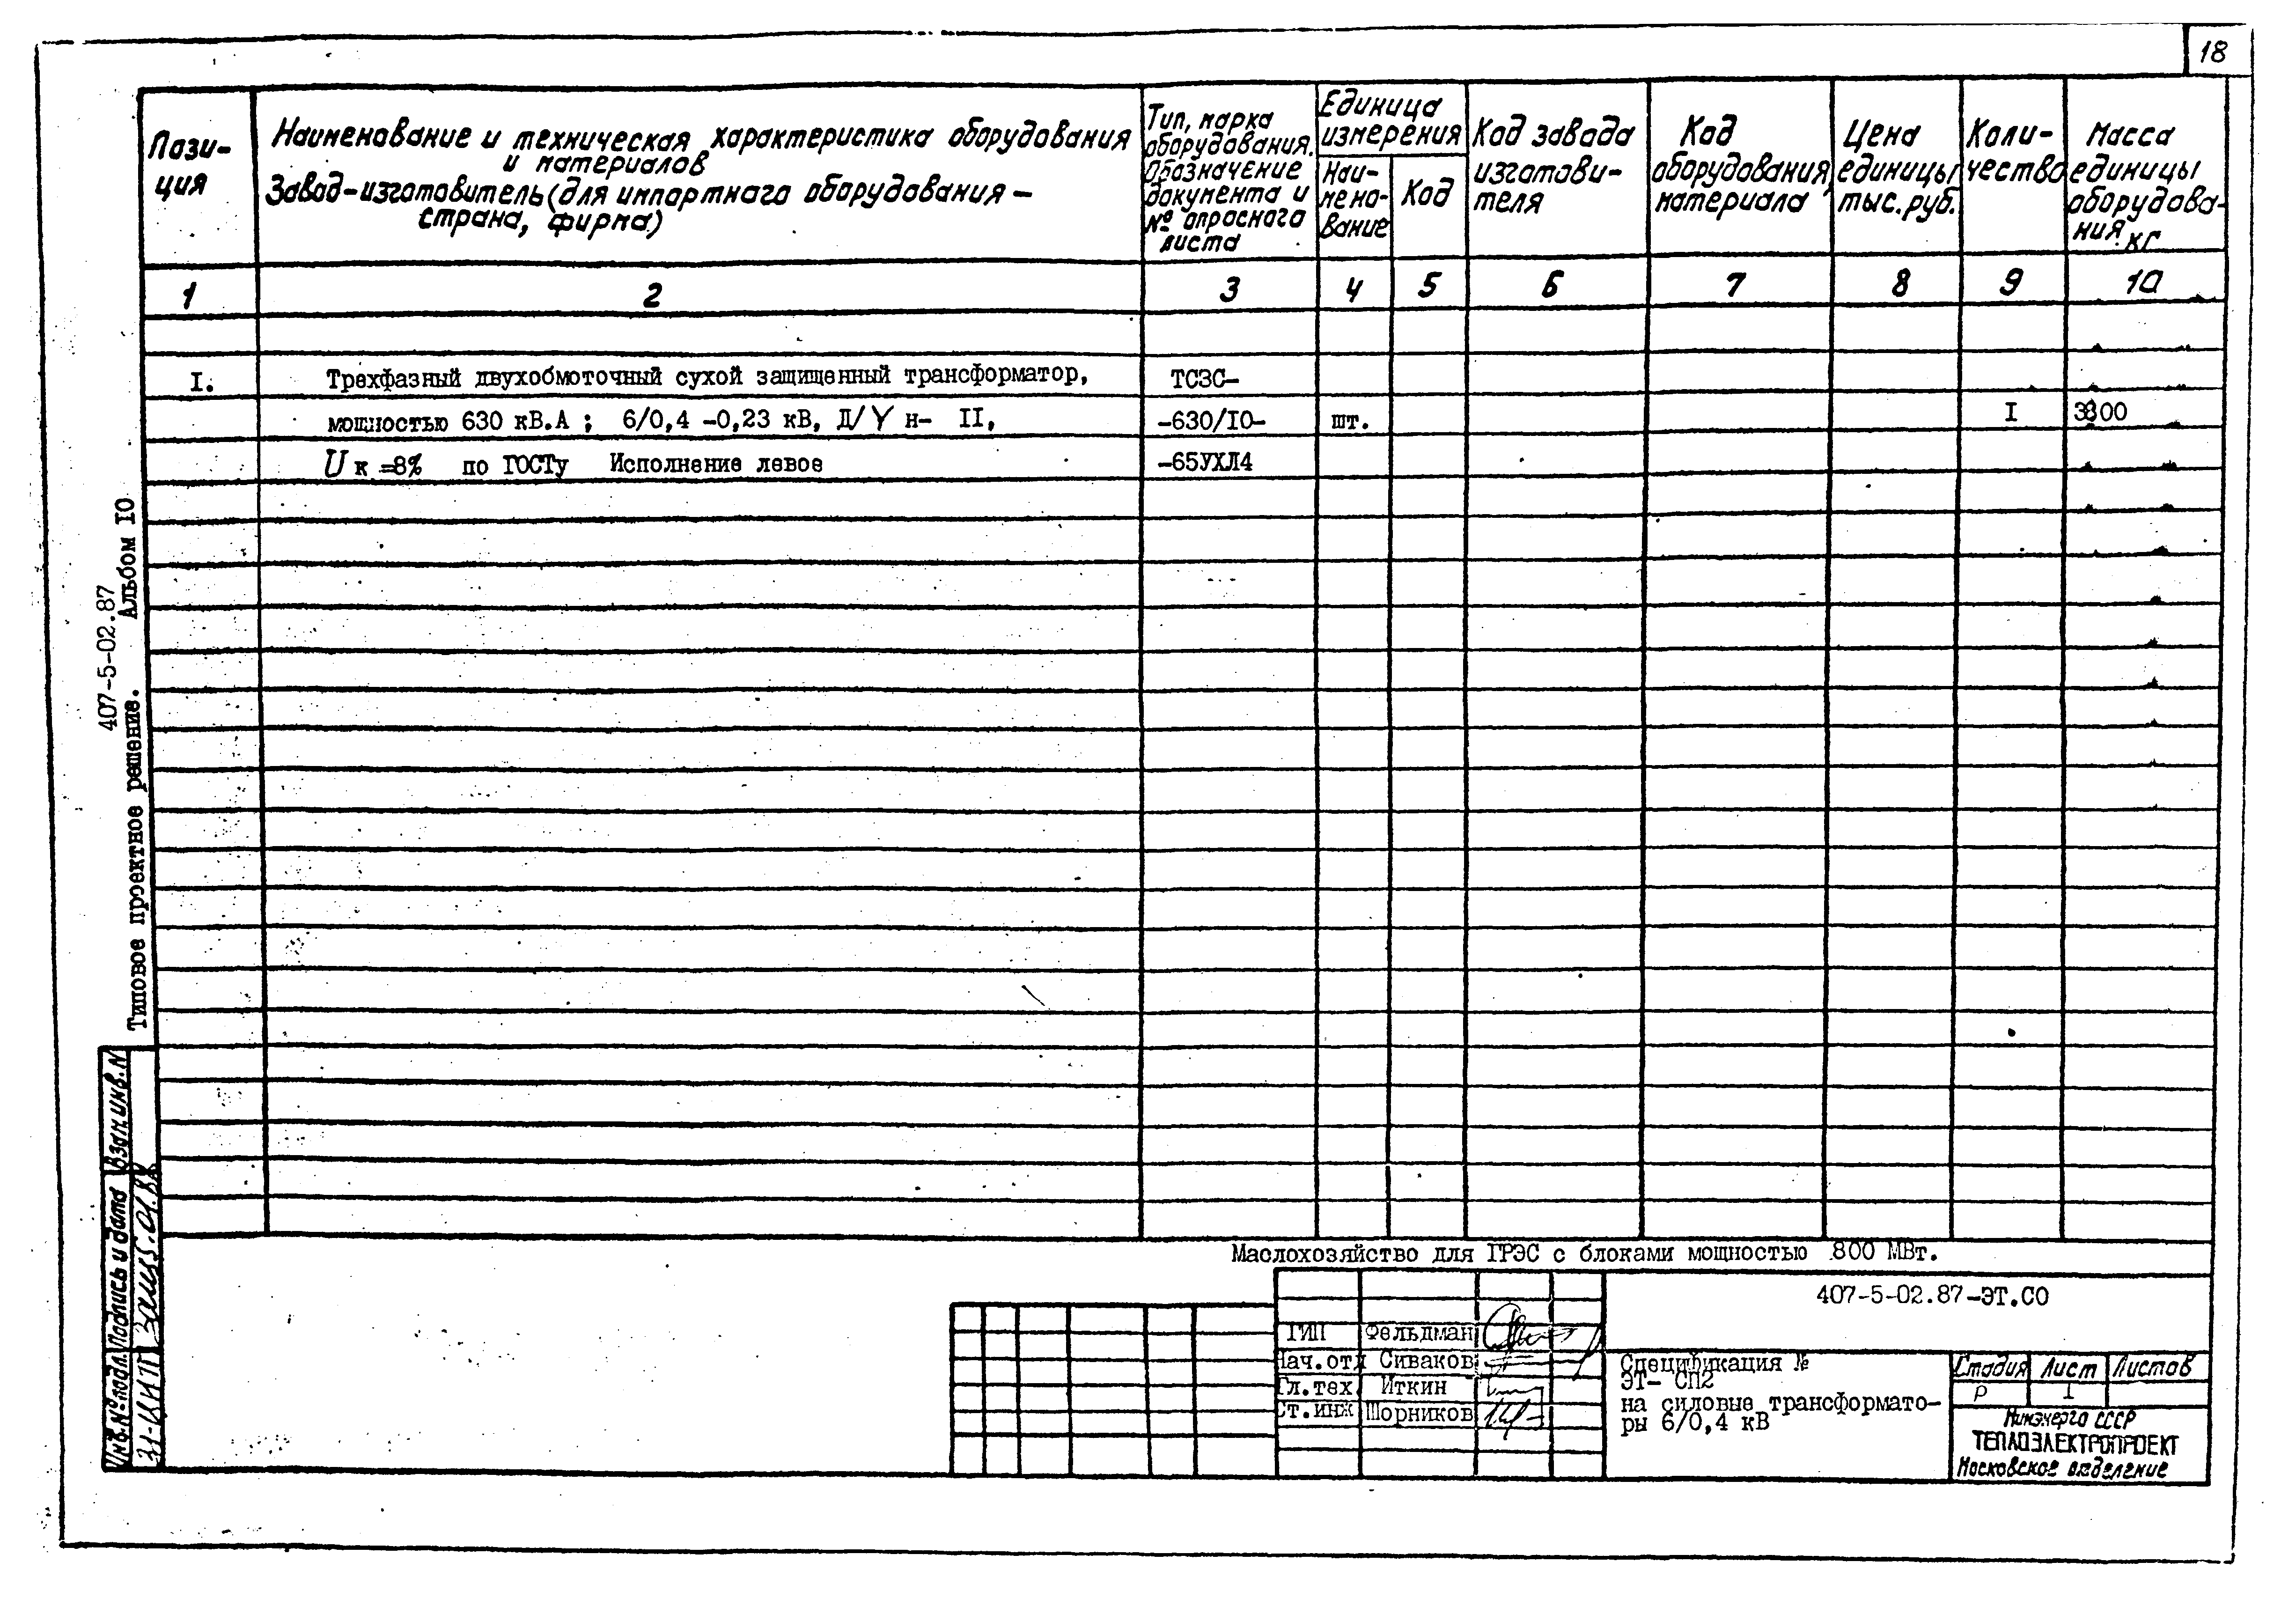 18
Пози-
ция
Наименование и техническая характеристика оборудования
и материалов
Завод-изготовитель (для импортного оборудования –
страна, фирма)
Тип, марка
оборудования.
Обозначение
документа и
№ опросного
листа
Единица
измерения
Наи-
мено-
вание
Код
Код завода
изготови-
теля
Код
оборудования,
материала
Цена
единицы
тыс.руб.
Коли-
чество
Масса
единицы
оборудова-
ния, кг
1 2 3 4 5 6 7 8 9 10
I. Трехфазный двухобмоточный сухой защищенный трансформатор, ТСЗС-
мощностью 630 кВ.А ; 6/0,4 -0,23 кВ, Д/Y н- II, -630/IO- шт. I
U к =8% по ГОСТу Исполнение левое -65УХЛ4
407-5-02.87
Типовое проектное решение. Альбом IO
Взам.инв.N
Подпись и дата
Инв.№ подл.
Маслохозяйство для ГРЭС с блоками мощностью 800 МВт.
407-5-02.87-ЭТ.СО
ГИП Фельдман
Нач.отд Сиваков
Гл.тех. Иткин
Ст.инж Шорников
Спецификация №
ЭТ- СП2
на силовые трансформато-
ры 6/0,4 кВ
Стадия Лист Листов
Р I
Минэнерго СССР
ТЕПЛОЭЛЕКТРОПРОЕКТ
Московское отделение